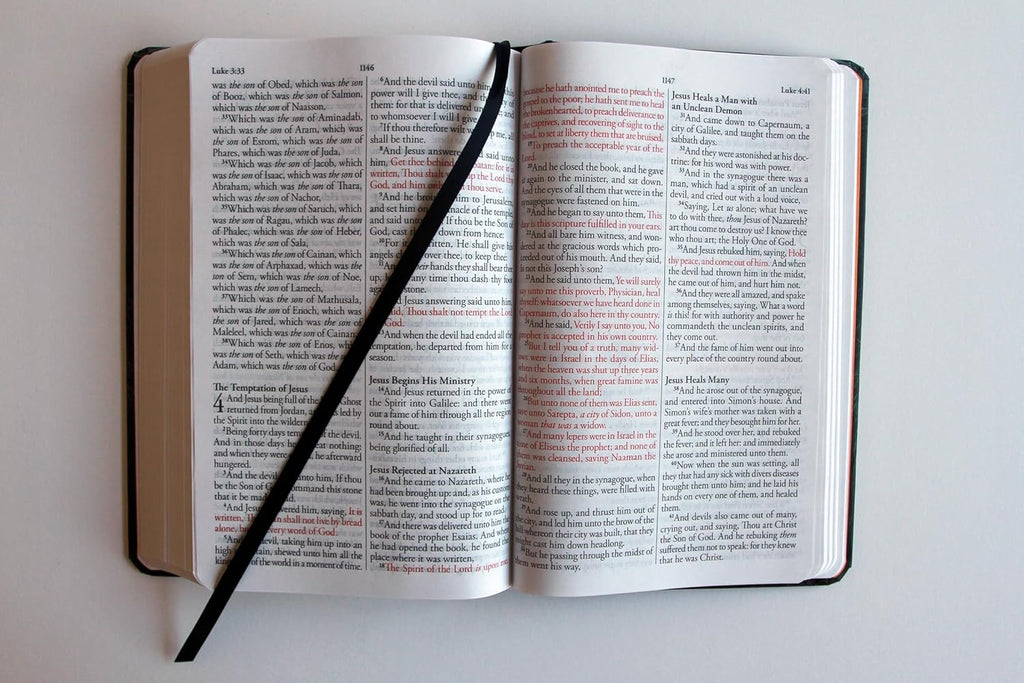 Luke 3:33
1146
was the son of Obed, which was the son
of Booz, which was the son of Salmon,
which was the son of Naasson,
33Which was the son of Aminadab,
which was the son of Aram, which was
the son of Esrom, which was the son of
Phares, which was the son of Juda,
34Which was the son of Jacob, which
was the son of Isaac, which was the son of
Abraham, which was the son of Thara,
which was the son of Nachor,
35Which was the son of Saruch, which
was the son of Ragau, which was the son
of Phalec, which was the son of Heber,
which was the son of Sala,
36Which was the son of Cainan, which
was the son of Arphaxad, which was the
son of Sem, which was the son of Noe,
which was the son of Lamech,
37Which was the son of Mathusala,
which was the son of Enoch, which was
the son of Jared, which was the son of
Maleleel, which was the son of Cainan,
38Which was the son of Enos, which
was the son of Seth, which was the son of
Adam, which was the son of God.
The Temptation of Jesus
4 And Jesus being full of the Ghost
returned from Jordan, led by
the Spirit into the wilderness,
2Being forty days of the devil.
And in those days he eat nothing:
and when they were he afterward
hungered.
3And the devil unto him, If thou
be the Son of command this stone
that it be made
4And Jesus him, saying, It is
written, shall not live by bread
alone, every word of God.
devil, taking him up into an
high shewed unto him all the
of the world in a moment of time.
6And the devil said unto him,
power will I give thee, and the
them: for that is delivered
to whomsoever I will I give
7If thou therefore wilt me, all
shall be thine.
8And Jesus answered said unto
him, Get thee behind Satan: for it is
written, Thou shalt the Lord thy
God, and him thou serve.
9And he brought to Jerusalem,
and set him on pinnacle of the temple,
and said unto If thou be the Son of
God, cast down from hence:
10For it written, He shall give his
angels over thee, to keep thee:
11 their hands they shall bear thee
up, any time thou dash thy foot
against a stone.
Jesus answering said unto him,
said, Thou shalt not tempt the Lord
God.
13And when the devil had ended all the
temptation, he departed from him for a
season.
Jesus Begins His Ministry
14And Jesus returned in the power of
the Spirit into Galilee: and there went
out a fame of him through all the region
round about.
15And he taught in their synagogues,
being glorified of all.
Jesus Rejected at Nazareth
16And he came to Nazareth, where he
had been brought up: and, as his custom
was, he went into the synagogue on the
sabbath day, and stood up for to read.
17And there was delivered unto him the
book of the prophet Esaias. And when
he had opened the book, he found the
place where it was written,
18The Spirit of the Lord is upon me,
1147
Luke 4:41
because he hath anointed me to preach the
gospel to the poor; he hath sent me to heal
the brokenhearted, to preach deliverance to
the captives, and recovering of sight to the
blind, to set at liberty them that are bruised,
19To preach the acceptable year of the
Lord.
20And he closed the book, and he gave
it again to the minister, and sat down.
And the eyes of all them that were in the
synagogue were fastened on him.
21And he began to say unto them, This
day is this scripture fulfilled in your ears.
22And all bare him witness, and won-
dered at the gracious words which pro-
ceeded out of his mouth. And they said,
Is not this Joseph's son?
23And he said unto them, Ye will surely
say unto me this proverb, Physician, heal
thyself: whatsoever we have heard done in
Capernaum, do also here in thy country.
24And he said, Verily I say unto you, No
prophet is accepted in his own country.
25But I tell you of a truth, many wid-
ows were in Israel in the days of Elias,
when the heaven was shut up three years
and six months, when great famine was
throughout all the land;
26But unto none of them was Elias sent,
save unto Sarepta, a city of Sidon, unto a
woman that was a widow.
27And many lepers were in Israel in the
time of Eliseus the prophet; and none of
them was cleansed, saving Naaman the
Syrian.
28And all they in the synagogue, when
they heard these things, were filled with
wrath,
29And rose up, and thrust him out of
the city, and led him unto the brow of the
hill whereon their city was built, that they
might cast him down headlong.
30But he passing through the midst of
them went his way,
Jesus Heals a Man with
an Unclean Demon
31And came down to Capernaum, a
city of Galilee, and taught them on the
sabbath days.
32And they were astonished at his doc-
trine: for his word was with power.
33And in the synagogue there was a
man, which had a spirit of an unclean
devil, and cried out with a loud voice,
34Saying, Let us alone; what have we
to do with thee, thou Jesus of Nazareth?
art thou come to destroy us? I know thee
who thou art; the Holy One of God.
35And Jesus rebuked him, saying, Hold
thy peace, and come out of him. And when
the devil had thrown him in the midst,
he came out of him, and hurt him not.
36And they were all amazed, and spake
among themselves, saying, What a word
is this! for with authority and power he
commandeth the unclean spirits, and
they come out.
37And the fame of him went out into
every place of the country round about.
Jesus Heals Many
38And he arose out of the synagogue,
and entered into Simon's house. And
Simon's wife's mother was taken with a
great fever; and they besought him for her.
39And he stood over her, and rebuked
the fever; and it left her: and immediately
she arose and ministered unto them.
40Now when the sun was setting, all
they that had any sick with divers diseases
brought them unto him; and he laid his
hands on every one of them, and healed
them.
41And devils also came out of many,
crying out, and saying, Thou art Christ
the Son of God. And he rebuking them
suffered them not to speak: for they knew
that he was Christ.